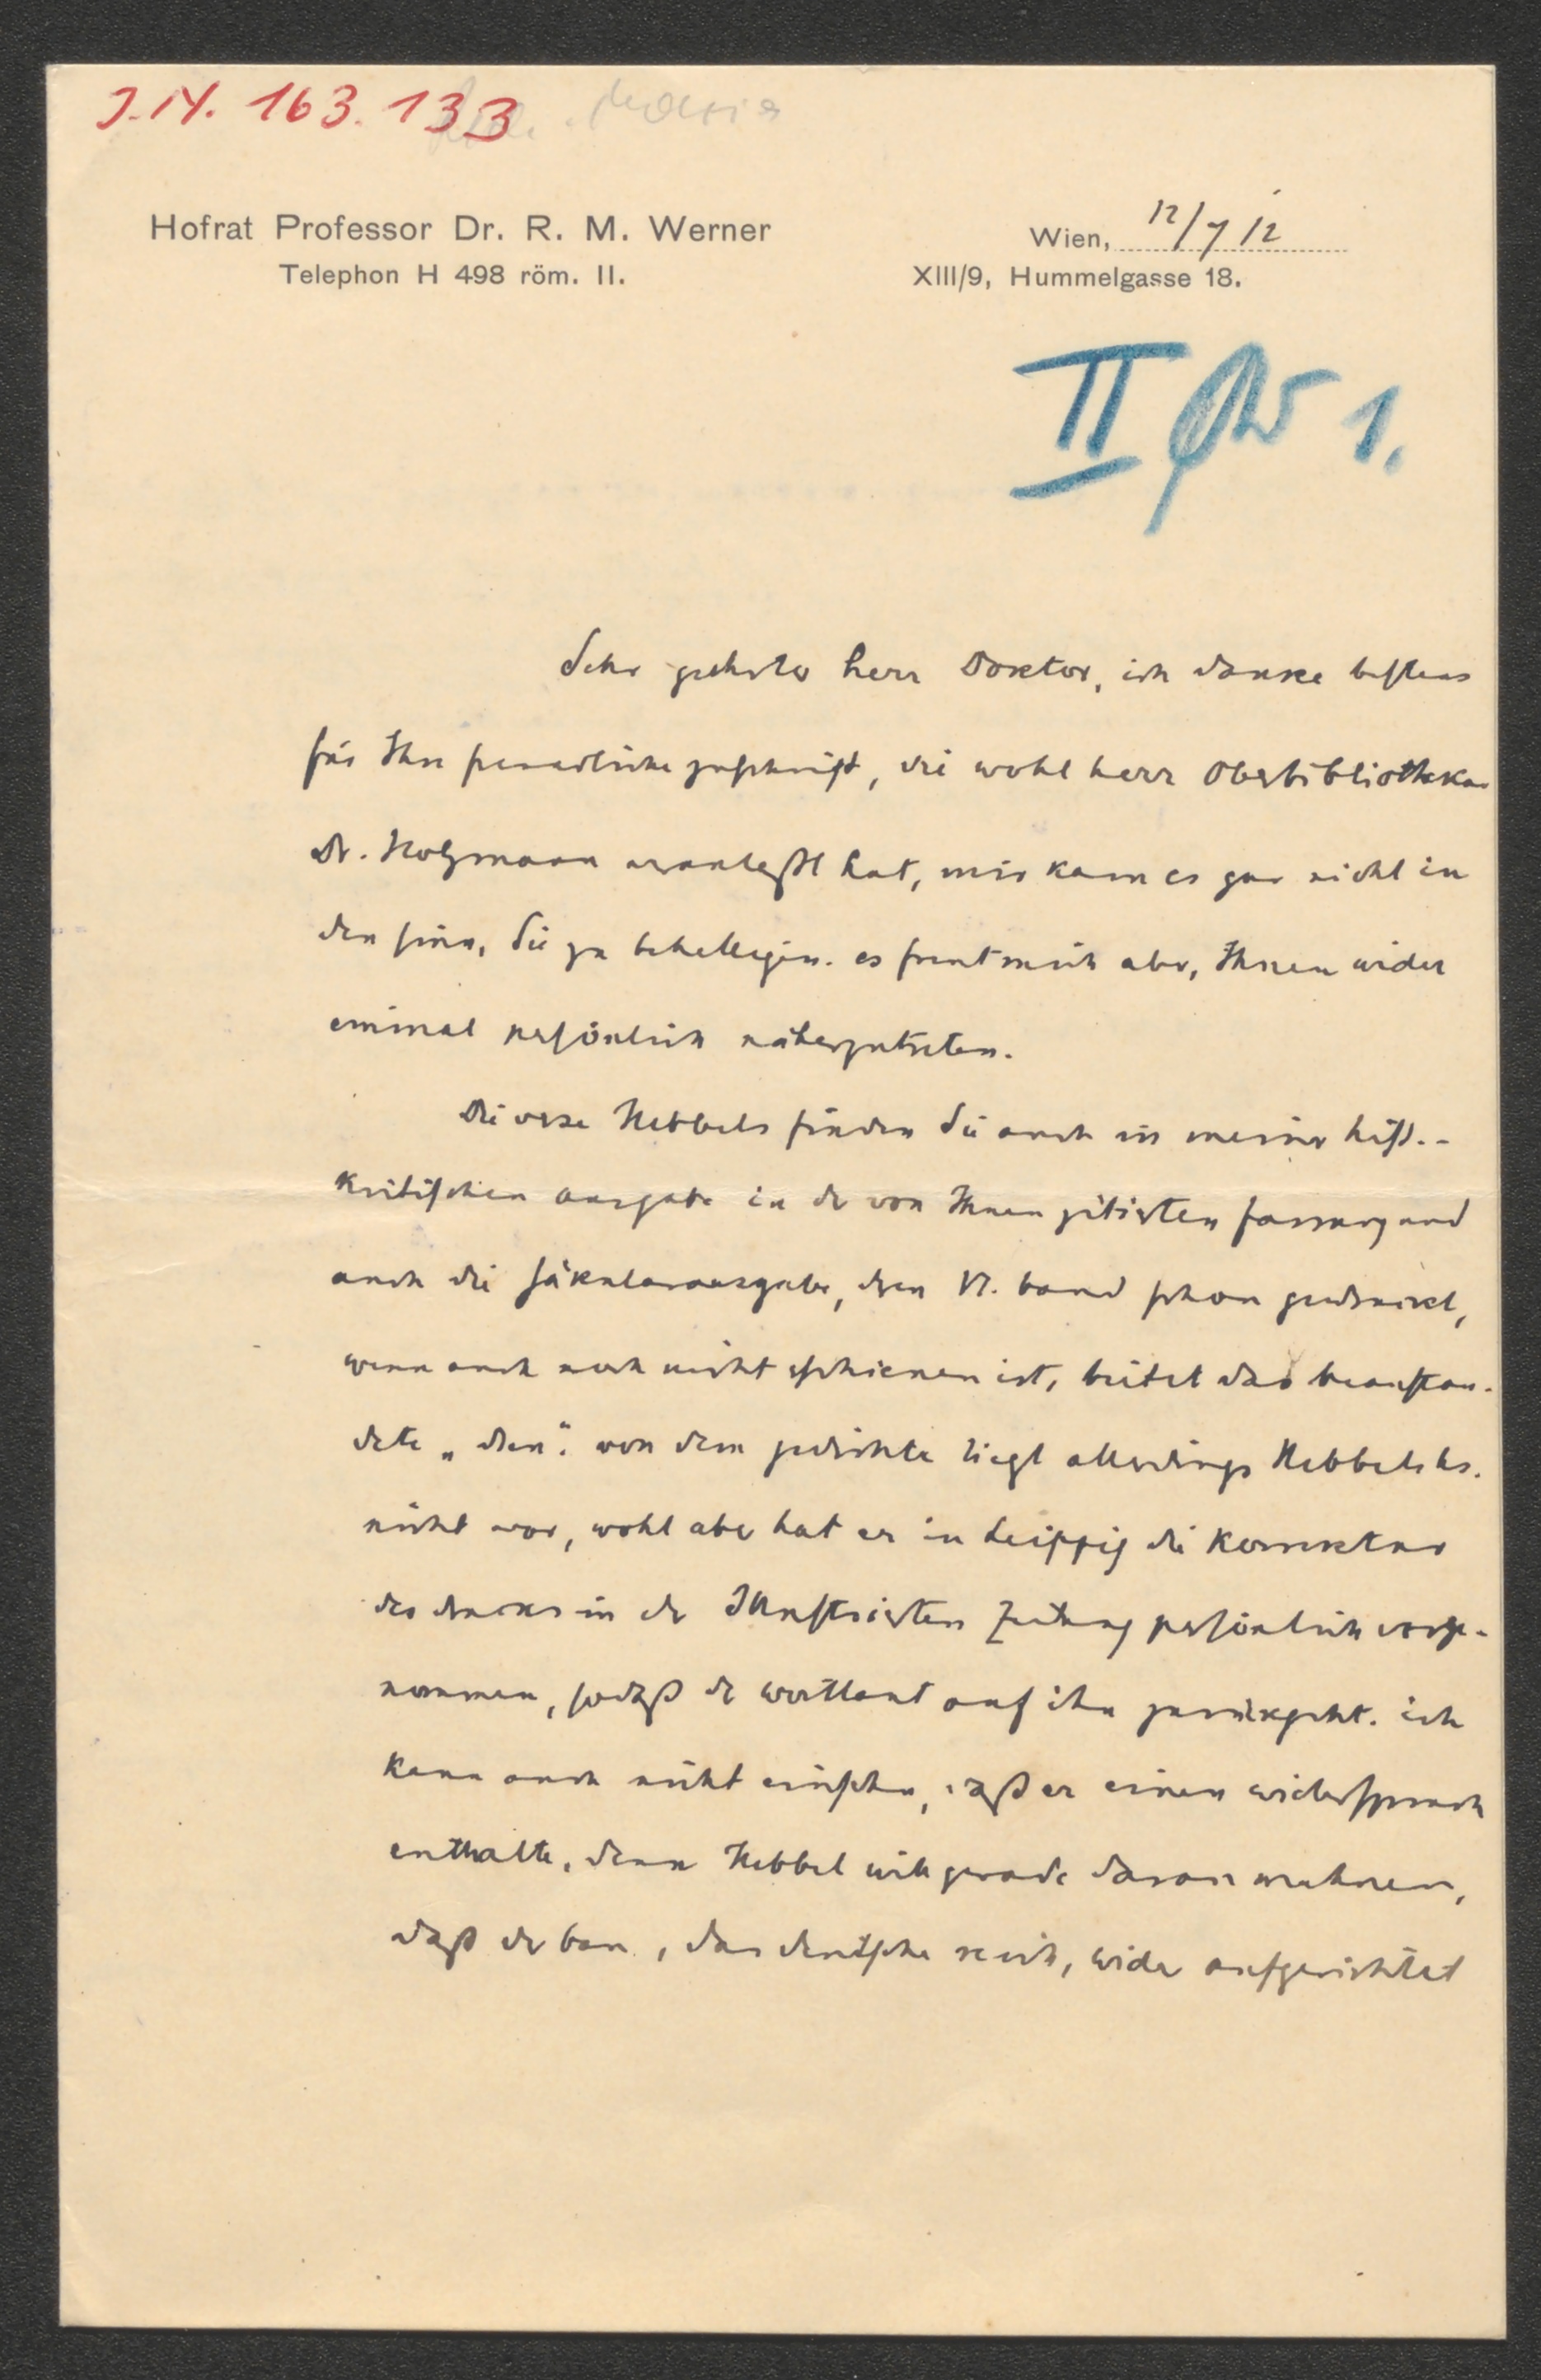 J.N. 163.133
Hofrat Professor Dr. R. M. Werner
Telephon H 498 röm. II.
Wien, 12/7 12
XIII/9, Hummelgasse 18.
II 1.
Sehr geehrter herr Doktor, ich danke bestens
für Ihre freundliche zuschrift, die wohl herr Oberbibliothekar
Dr. Holzmann veranlaßt hat, mir kam es gar nicht in
den sinn, Sie zu behelligen. es freut mich aber, Ihnen wider
einmal persönlich näherzutreten.
Die verse Hebbels finden Sie auch in meiner hist.-
kritischen ausgabe in der von Ihnen zitirten fassung und
auch die säkularausgabe, deren VI. band schon gedruckt,
wenn auch noch nicht erschienen ist, bietet das beanstan-
dete „den“. von dem gedichte liegt allerdings Hebbels hs.
nicht vor, wohl aber hat er in Leipzig die korrektur
des druckes in der Illustrirten Zeitung persönlich vorge-
nommen, sodaß der wortlaut auf ihn zurückgeht. ich
kann auch nicht einsehen, daß er einen widerspruch
enthalte, denn Hebbel will gerade daran mahnen,
daß der bau, das deutsche reich, wider aufgerichtet